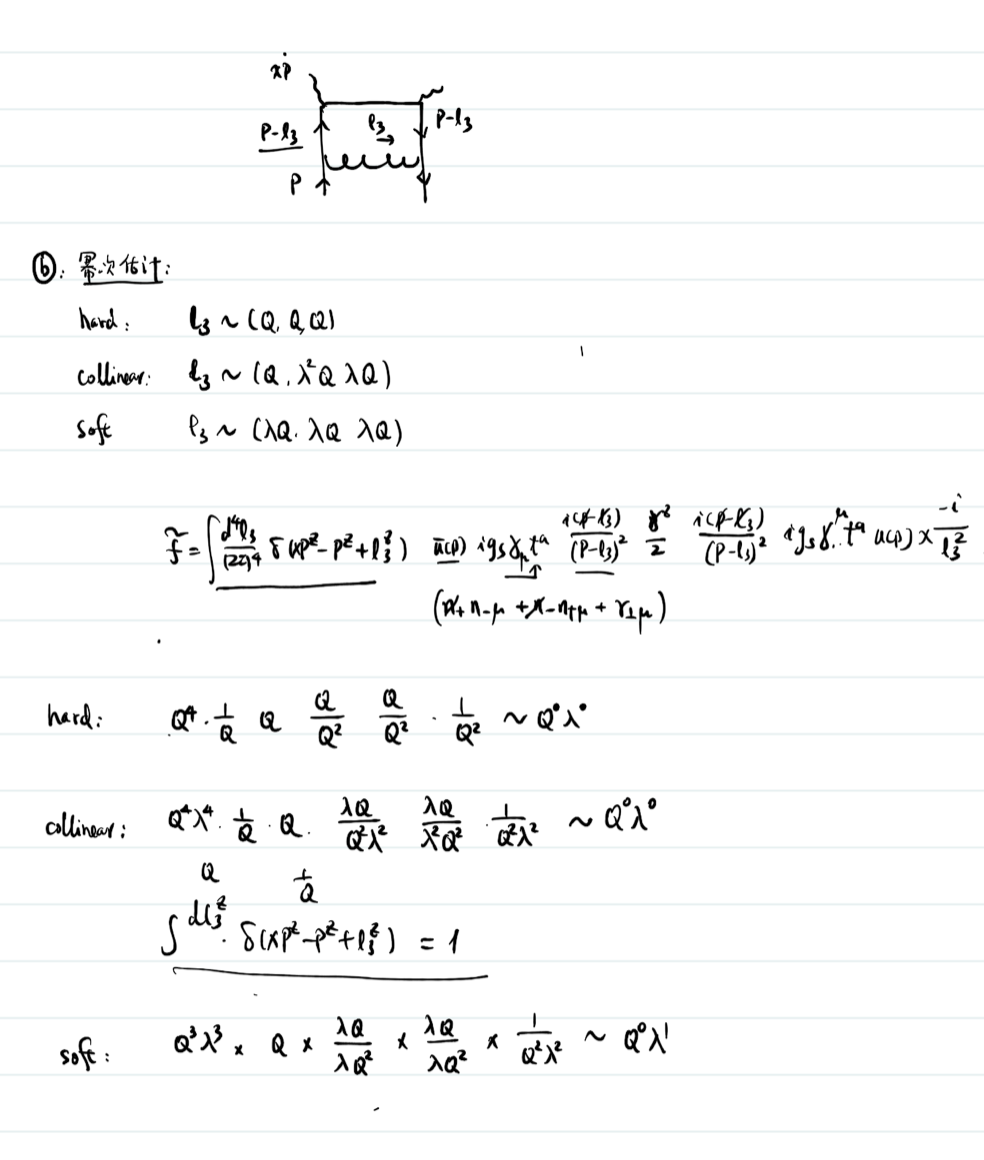 xp
p-l₃ l₃ → p-l₃
p
⑥: 幂次估计:
hard: l₃ ~ (Q, Q, Q)
collinear: l₃ ~ (Q, λ²Q λQ)
soft l₃ ~ (λQ. λQ λQ)
f̃ = ∫ d⁴l₃/(2π)⁴ δ(xp^z - p^z + l₃^z) ū(p) i g_s γ_μ t^a i(p̸-l̸₃)/(p-l₃)² γ^z/2 i(p̸-l̸₃)/(p-l₃)² i g_s γ^μ t^a u(p) × -i/l₃²
(n̸₊ n₋μ + n̸₋ n₊μ + γ⊥μ)
hard: Q⁴ · 1/Q Q Q/Q² Q/Q² · 1/Q² ~ Q⁰λ⁰
collinear: Q⁴λ⁴ · 1/Q · Q · λQ/Q²λ² λQ/λ²Q² · 1/Q²λ² ~ Q⁰λ⁰
Q 1/Q
∫ dl₃^z · δ(xp^z - p^z + l₃^z) = 1
soft: Q³λ³ × Q × λQ/λQ² × λQ/λQ² × 1/Q²λ² ~ Q⁰λ¹